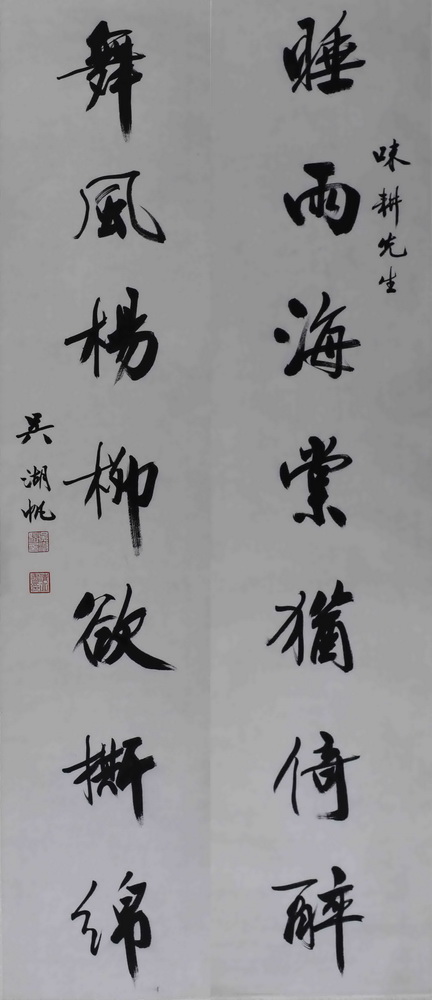 味耕先生
睡雨海棠猶倚醉
舞風楊柳欲撕綿
吳湖帆